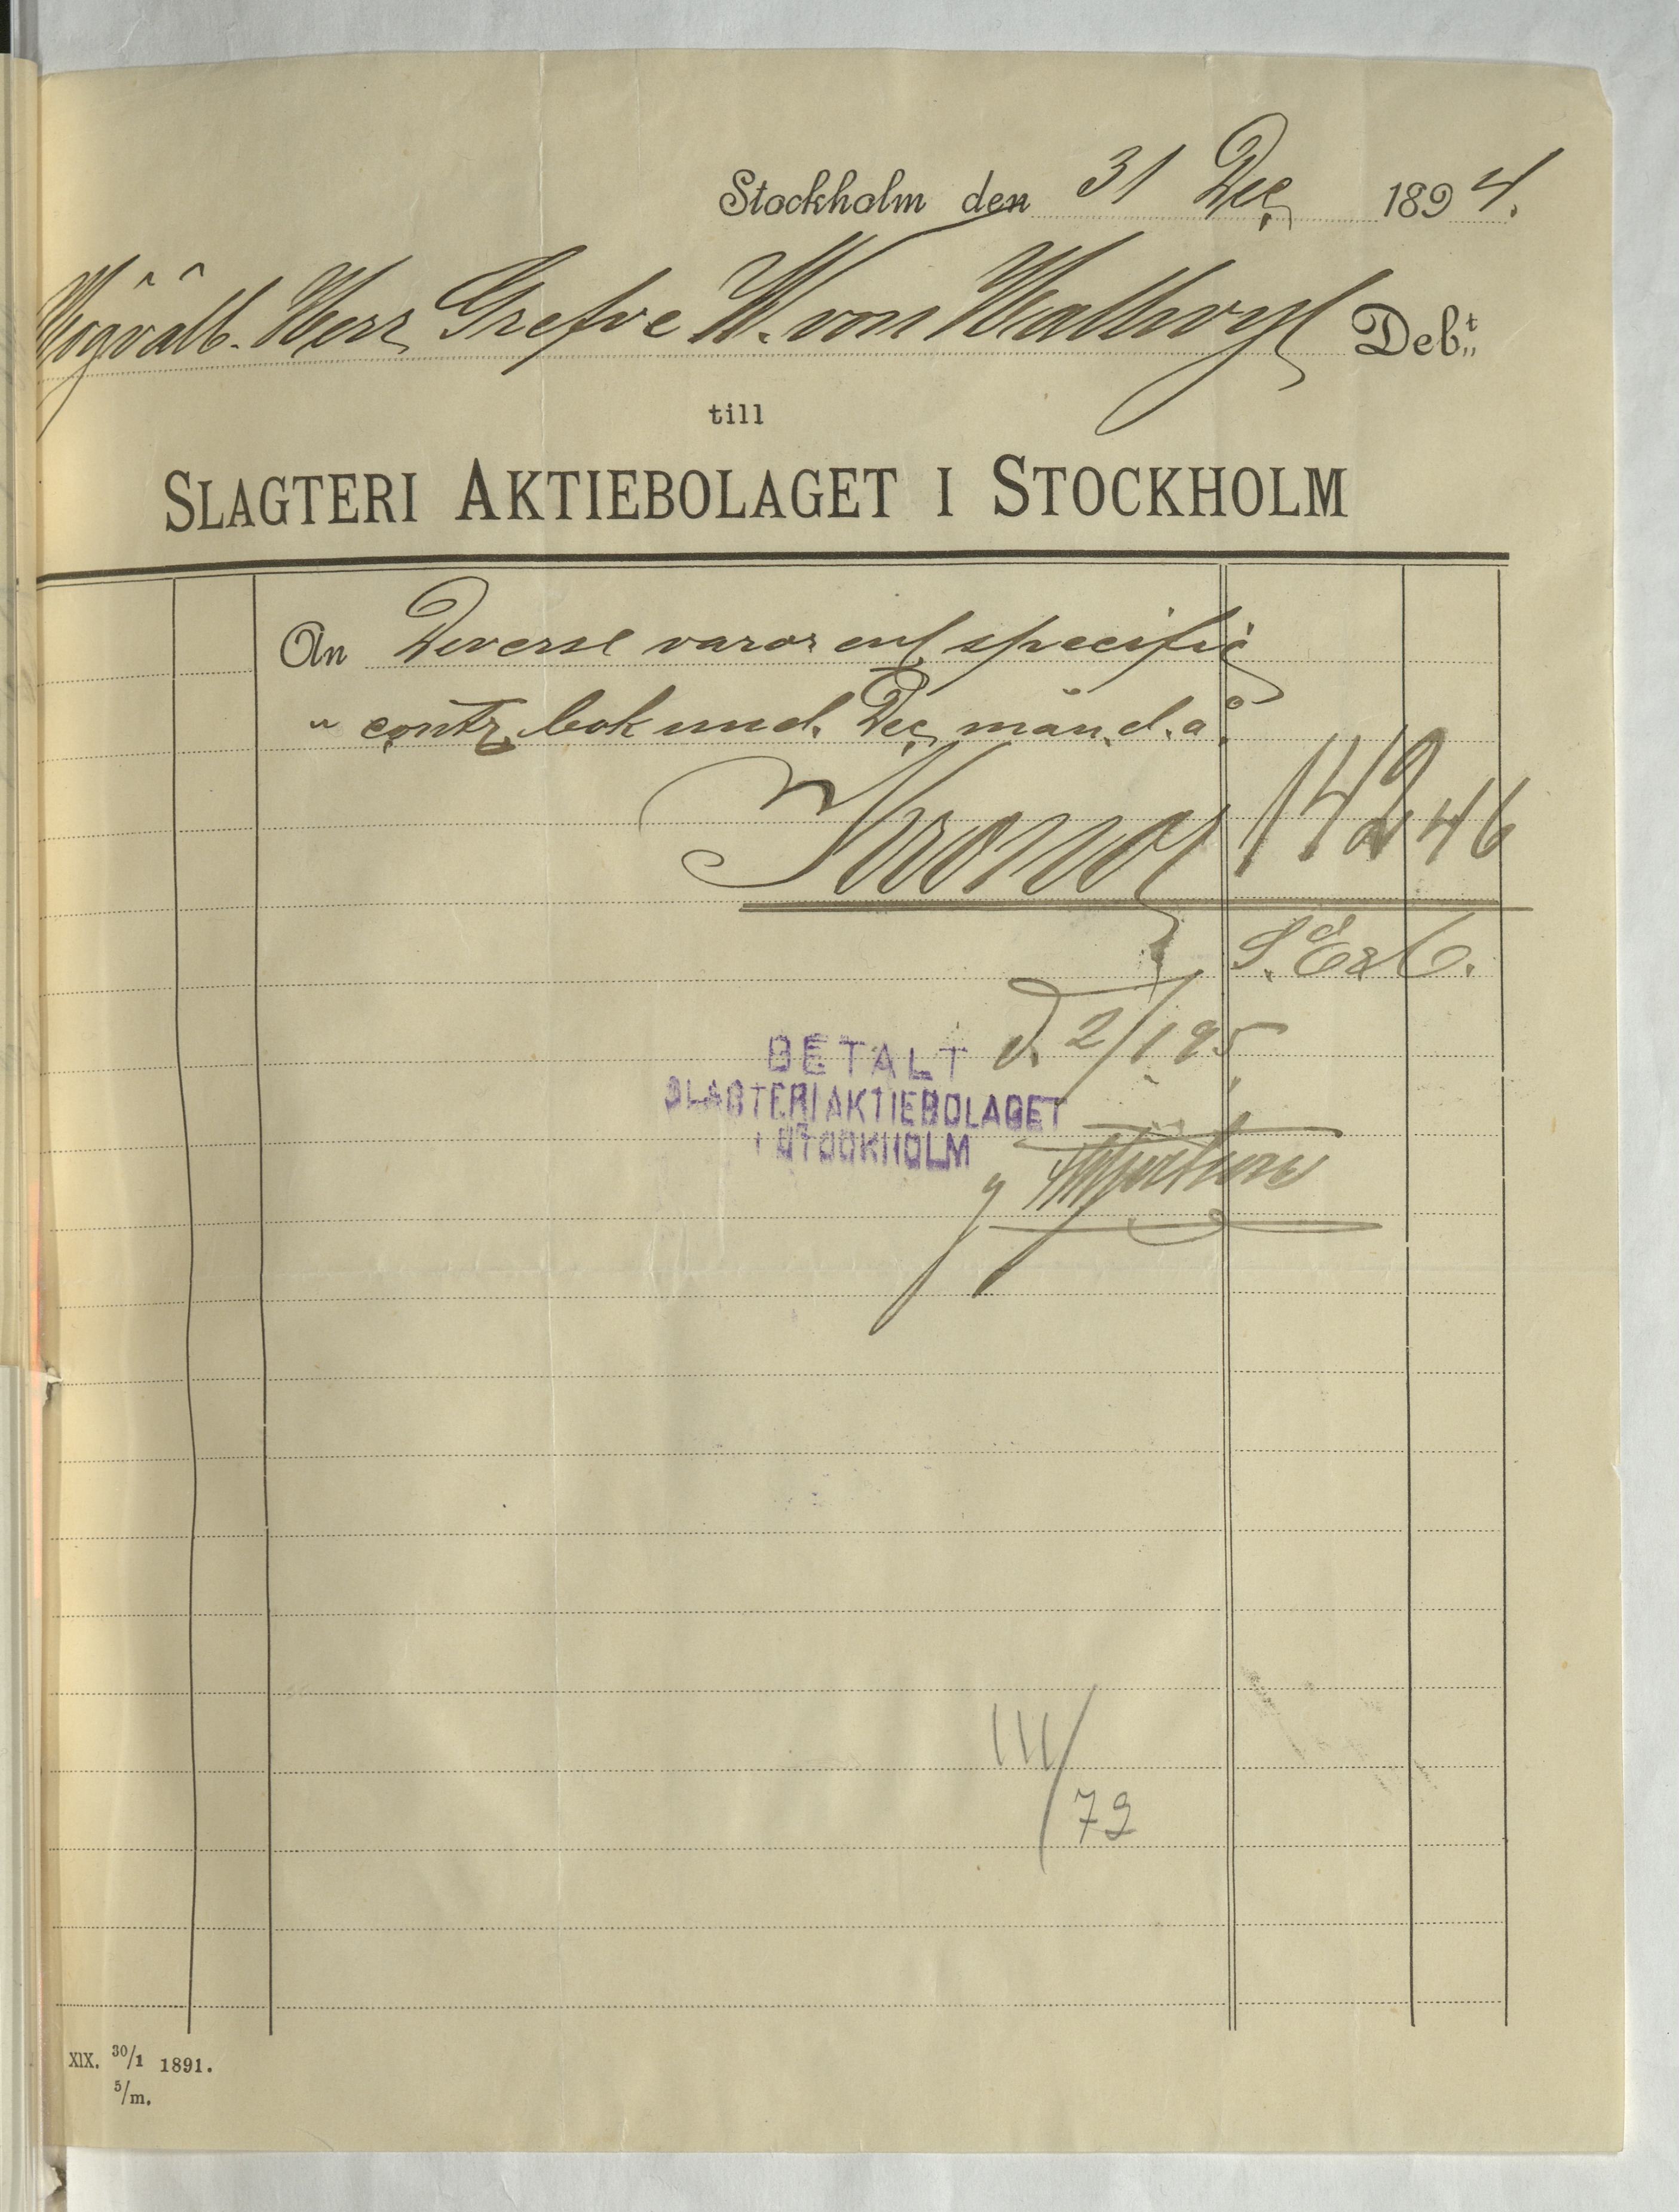 Stockholm den 31 Dec 1894.
Högvälb. Herr Grefve W. von Hallwyl Deb:t
till
SLAGTERI AKTIEBOLAGET I STOCKHOLM
An Diverse varor enl specific
" contr. bok und. Dec mån. d. å.
Kronor 142 46
S. E & O.
d. 2/1 95
BETALT
SLAGTERIAKTIEBOLAGET
I STOCKHOLM
111/
72
XIX. 30/1 1891.
5/m.